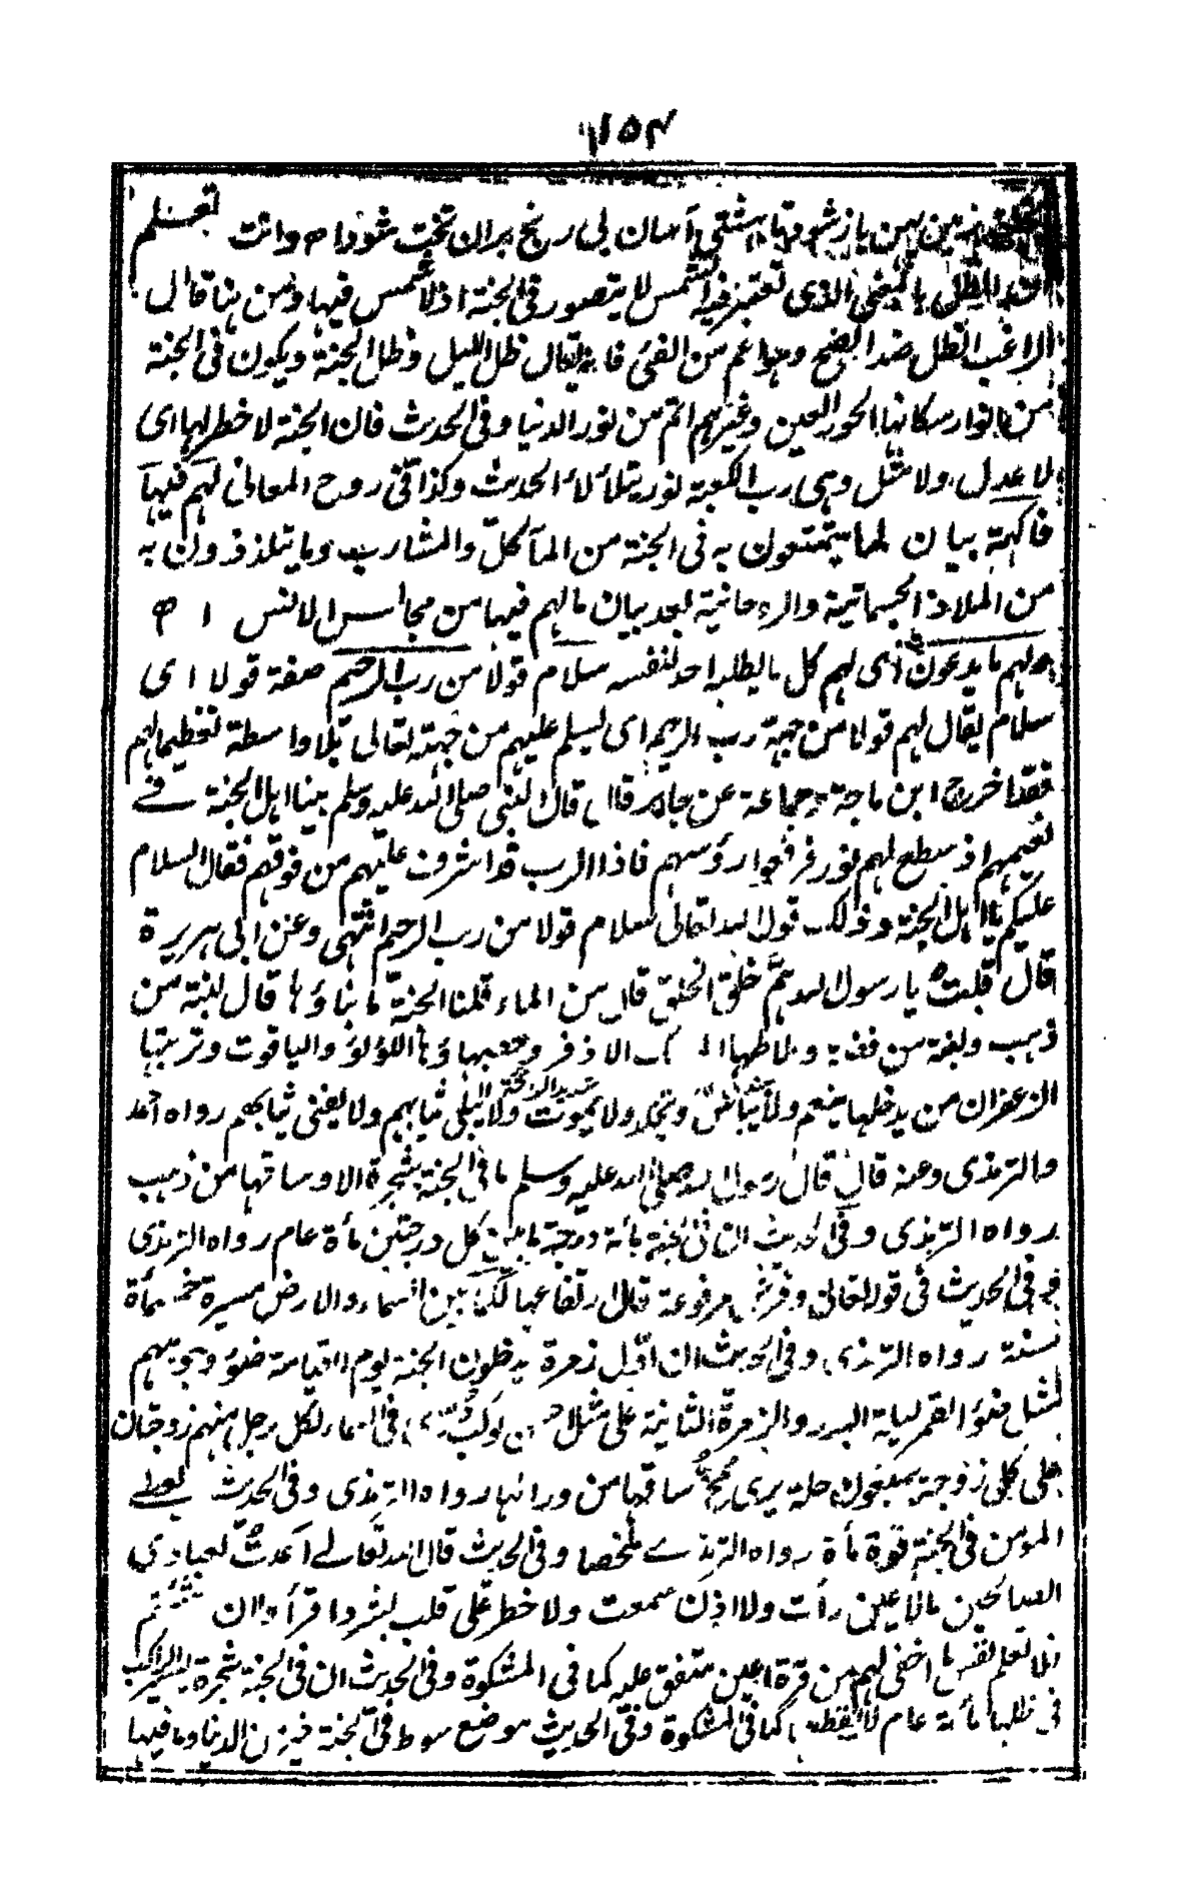 ١١٥٤
زمین ہمین باز شو وتا بہشتی آسان بی رنج بران تخت شو ا ه وانت تعلم
الظل بالمعنى الذى تعتبر فيه الشمس لا يتصور فى الجنة اذ لا شمس فيها ومن هنا قال
الراغب الظل ضد الضح وهو اعم من الفئ فانه يقال ظل الليل وظل الجنة ويكون فى الجنة
من انوار سكانها الحور العين وغيرهم اتم من نور الدنيا وفى الحديث فان الجنة لا خطر لها اى
لا عدل ولا مثل وهى ورب الكعبة نور يتلألأ الحديث وكذا فى روح المعانى لهم فيها
فاكهة بيان لما يتمتعون به فى الجنة من المآكل والمشارب وما يتلذذون به
من الملاذ الجسمانية والروحانية بعد بيان ما لهم فيها من مجالس الانس ا ه
ولهم ما يدعون اى لهم كل ما يطلبه احد لنفسه سلام قولا من رب الرحيم صفة قولا اى
سلام يقال لهم قولا من جهة رب الرحيم اى يسلم عليهم من جهته تعالى بلا واسطة تعظيما لهم
فقد اخرج ابن ماجة وجماعة عن جابر قال قال النبى صلى الله عليه وسلم بينا اهل الجنة فے
نعيمهم اذ سطع لهم نور فرفعوا رؤسهم فاذا الرب قد اشرف عليهم من فوقهم فقال السلام
عليكم يا اهل الجنة وذلك قول الله تعالى سلام قولا من رب الرحيم انتهى وعن ابى هريرة
قال قلت يا رسول الله مم خلق الخلق قال من الماء قلنا الجنة ما بناؤها قال لبنة من
ذهب ولبنة من فضة وملاطها الـمسك الاذفر وحصباؤها اللؤلؤ والياقوت وتربتها
الزعفران من يدخلها ينعم ولا يبأس ويخلد ولا يموت ولا يبلى ثيابهم ولا يفنى شبابهم رواه احمد
والترمذى وعنه قال قال رسول الله صلى الله عليه وسلم ما فى الجنة شجرة الا وساقها من ذهب
رواه الترمذى وفى الحديث ان فى الجنة مائة درجة ما بين كل درجتين مأة عام رواه الترمذى
وفى الحديث فى قوله تعالى وفرش مرفوعة قال ارتفاعها لكما بين السماء والارض مسيرة خمسمأة
سنة رواه الترمذى وفى الحديث ان اول زمرة يدخلون الجنة يوم القيامة ضوء وجوههم
مثل ضوء القمر ليلة البدر والزمرة الثانية على مثل احسن كوكب درى فى السماء لكل رجل منهم زوجتان
على كل زوجة سبعون حلة يرى مخ ساقها من ورائها رواه الترمذى وفى الحديث يعطے
المؤمن فى الجنة قوة مأة رواه الترمذے ملخصا وفى الحديث قال الله تعالے اعدت لعبادى
الصالحين ما لا عين رأت ولا اذن سمعت ولا خطر على قلب بشر واقرأوا ان شئتم
فلا تعلم نفس ما اخفى لهم من قرة اعين متفق عليه كما فى المشكوة وفى الحديث ان فى الجنة شجرة يسير الراكب
فى ظلها مأة عام لا يقطعها كما فى المشكوة وفى الحديث موضع سوط فى الجنة خير من الدنيا وما فيها